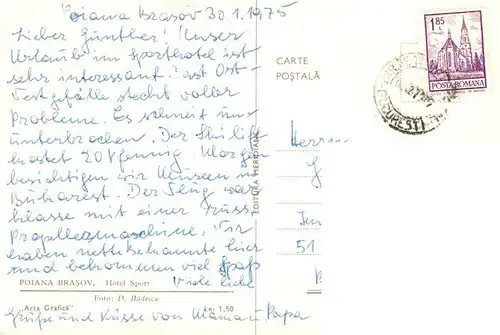 Poiana Brasov 30.1.1975
Lieber Günther! Unser
Urlaub im Sporthotel ist
sehr interessant! Das Ost-
Westgefälle steckt voller
Probleme. Es schneit un-
unterbrochen. Der Skilift
kostet 20 Pfennig. Morgen
besichtigen wir Museen in
Bukarest. Der Flug war
klasse mit einer russ.
Propellermaschine. Wir
haben nette Bekannte hier
und bekommen viel Spaß
Viele liebe
POIANA BRAȘOV, Hotel Sport
Foto: D. Bădescu
"Arta Grafică" Lei 1,50
Grüße und Küsse von Mama u Papa
EDITURA MERIDIANE
CARTE
POȘTALĂ
1,85
L
POSTA ROMANA
BUCURESTI
Herrn
51